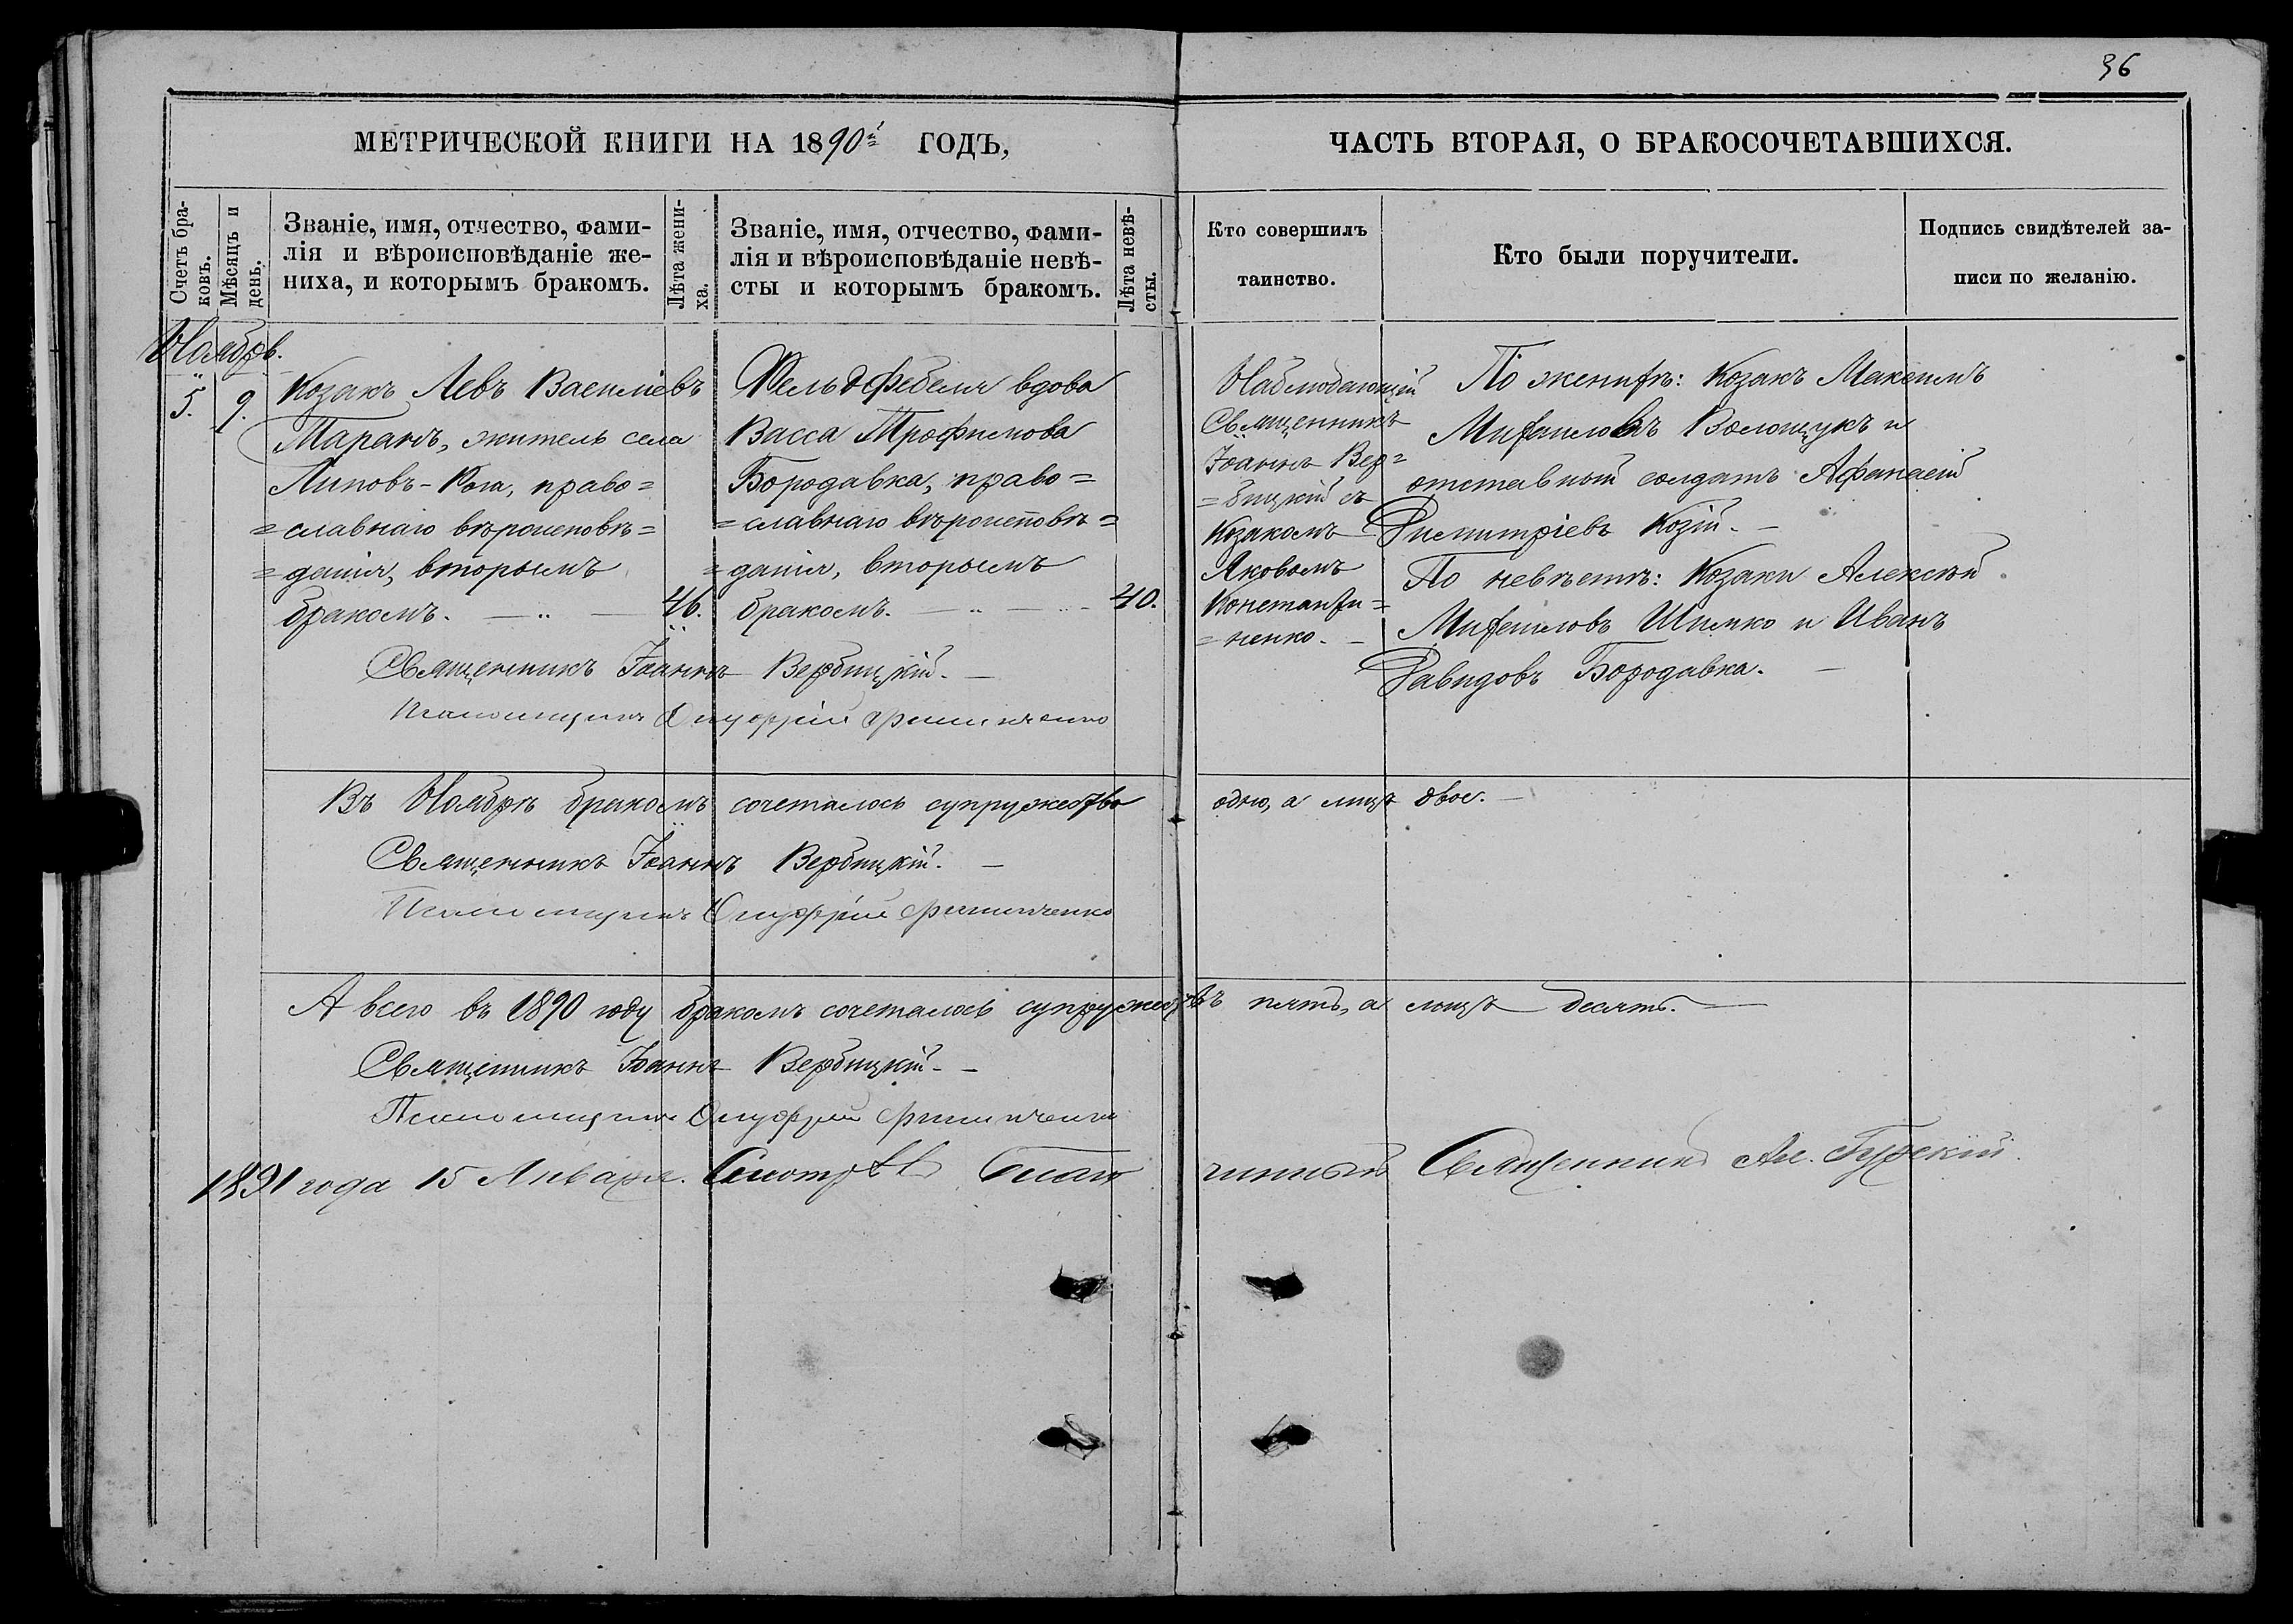 36
МЕТРИЧЕСКОЙ КНИГИ НА 1890й ГОДЪ,
ЧАСТЬ ВТОРАЯ, О БРАКОСОЧЕТАВШИХСЯ.
Счетъ бра-
ковъ.
Мѣсяцъ и
день.
Званіе, имя, отчество, фами-
лія и вѣроисповѣданіе же-
ниха, и которымъ бракомъ.
Лѣта жени-
ха.
Званіе, имя, отчество, фами-
лія и вѣроисповѣданіе невѣ-
сты и которымъ бракомъ.
Лѣта невѣ-
сты.
Кто совершилъ
таинство.
Кто были поручители.
Подпись свидѣтелей за-
писи по желанію.
Ноябрь.
5. 9.
Козакъ Левъ Василіевъ
Таранъ, житель села
Липовъ-Рога, право=
=славнаго вѣроисповѣ=
=данія, вторымъ
бракомъ. 46.
Фельдфебеля вдова
Васса Трофимова
Бородавка, право=
=славнаго вѣроисповѣ=
=данія, вторымъ
бракомъ. 40.
Наблюдающій
Священникъ
Іоаннъ Вер=
=бицкій съ
Козакомъ
Яковомъ
Константи=
=ненко.
По женихѣ: Козакъ Максимъ
Михаиловъ Волощукъ и
отставной солдатъ Афанасій
Димитріевъ Козій.
По невѣстѣ: Козаки Алексѣй
Михаиловъ Шимко и Иванъ
Давидовъ Бородавка.
Священникъ Іоаннъ Вербицкій.
Псаломщикъ Онуфрій
Въ Ноябрѣ бракомъ сочеталось супружество одно, а лицъ двое.
Священникъ Іоаннъ Вербицкій.
Псаломщикъ Онуфрій
А всего въ 1890 году бракомъ сочеталось супружествъ пять, а лицъ десять.
Священникъ Іоаннъ Вербицкій
Псаломщикъ Онуфрій
1891 года 15 Января. Смотрѣлъ Благочинный Священникъ Ал.